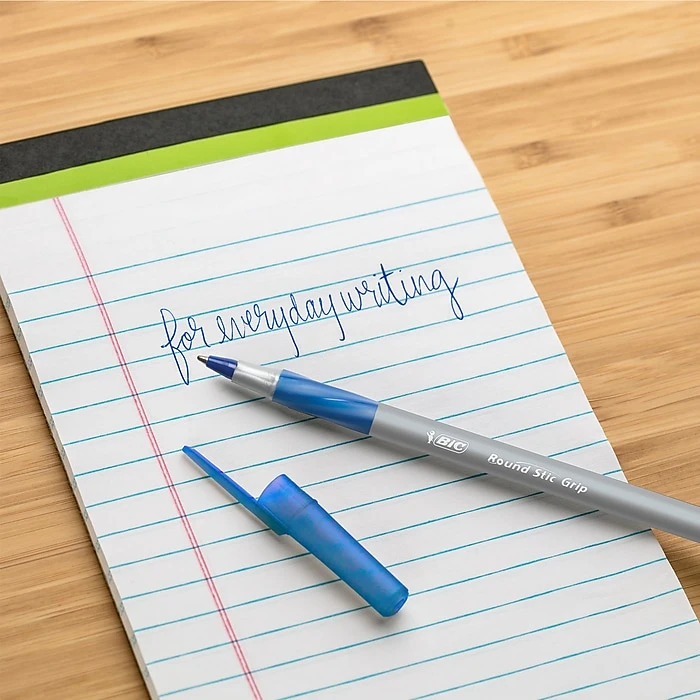 for everyday writing
BIC Round Stic Grip